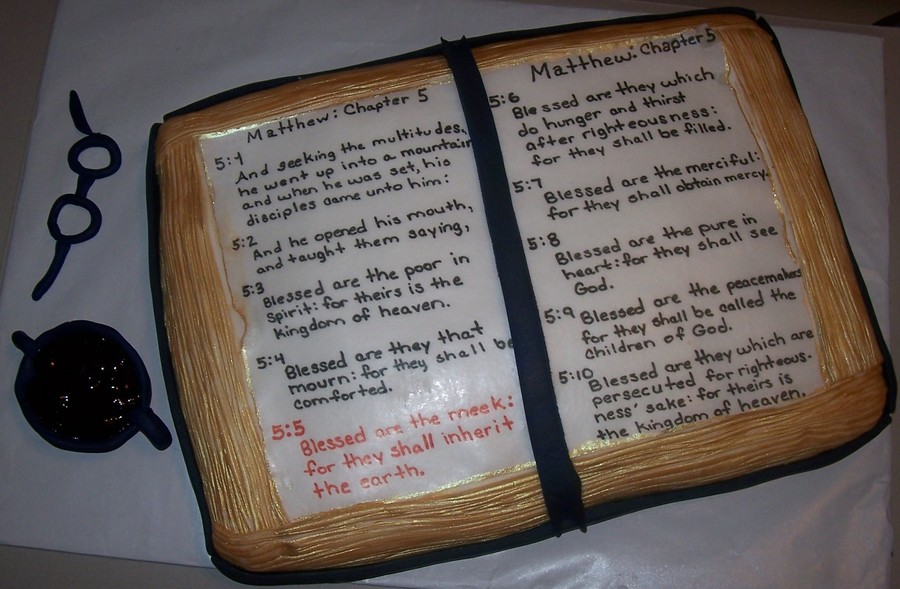 Matthew: Chapter 5
5:1
And seeking the multitudes,
he went up into a mountain
and when he was set, his
disciples came unto him:
5:2
And he opened his mouth,
and taught them saying,
5:3
Blessed are the poor in
spirit: for theirs is the
kingdom of heaven.
5:4
Blessed are they that
mourn: for they shall be
comforted.
5:5
Blessed are the meek:
for they shall inherit
the earth.
Matthew: Chapter 5
5:6
Blessed are they which
do hunger and thirst
after righteousness:
for they shall be filled.
5:7
Blessed are the merciful:
for they shall obtain mercy.
5:8
Blessed are the pure in
heart: for they shall see
God.
5:9
Blessed are the peacemakers
for they shall be called the
Children of God.
5:10
Blessed are they which are
persecuted for righteous-
ness' sake: for theirs is
the kingdom of heaven.